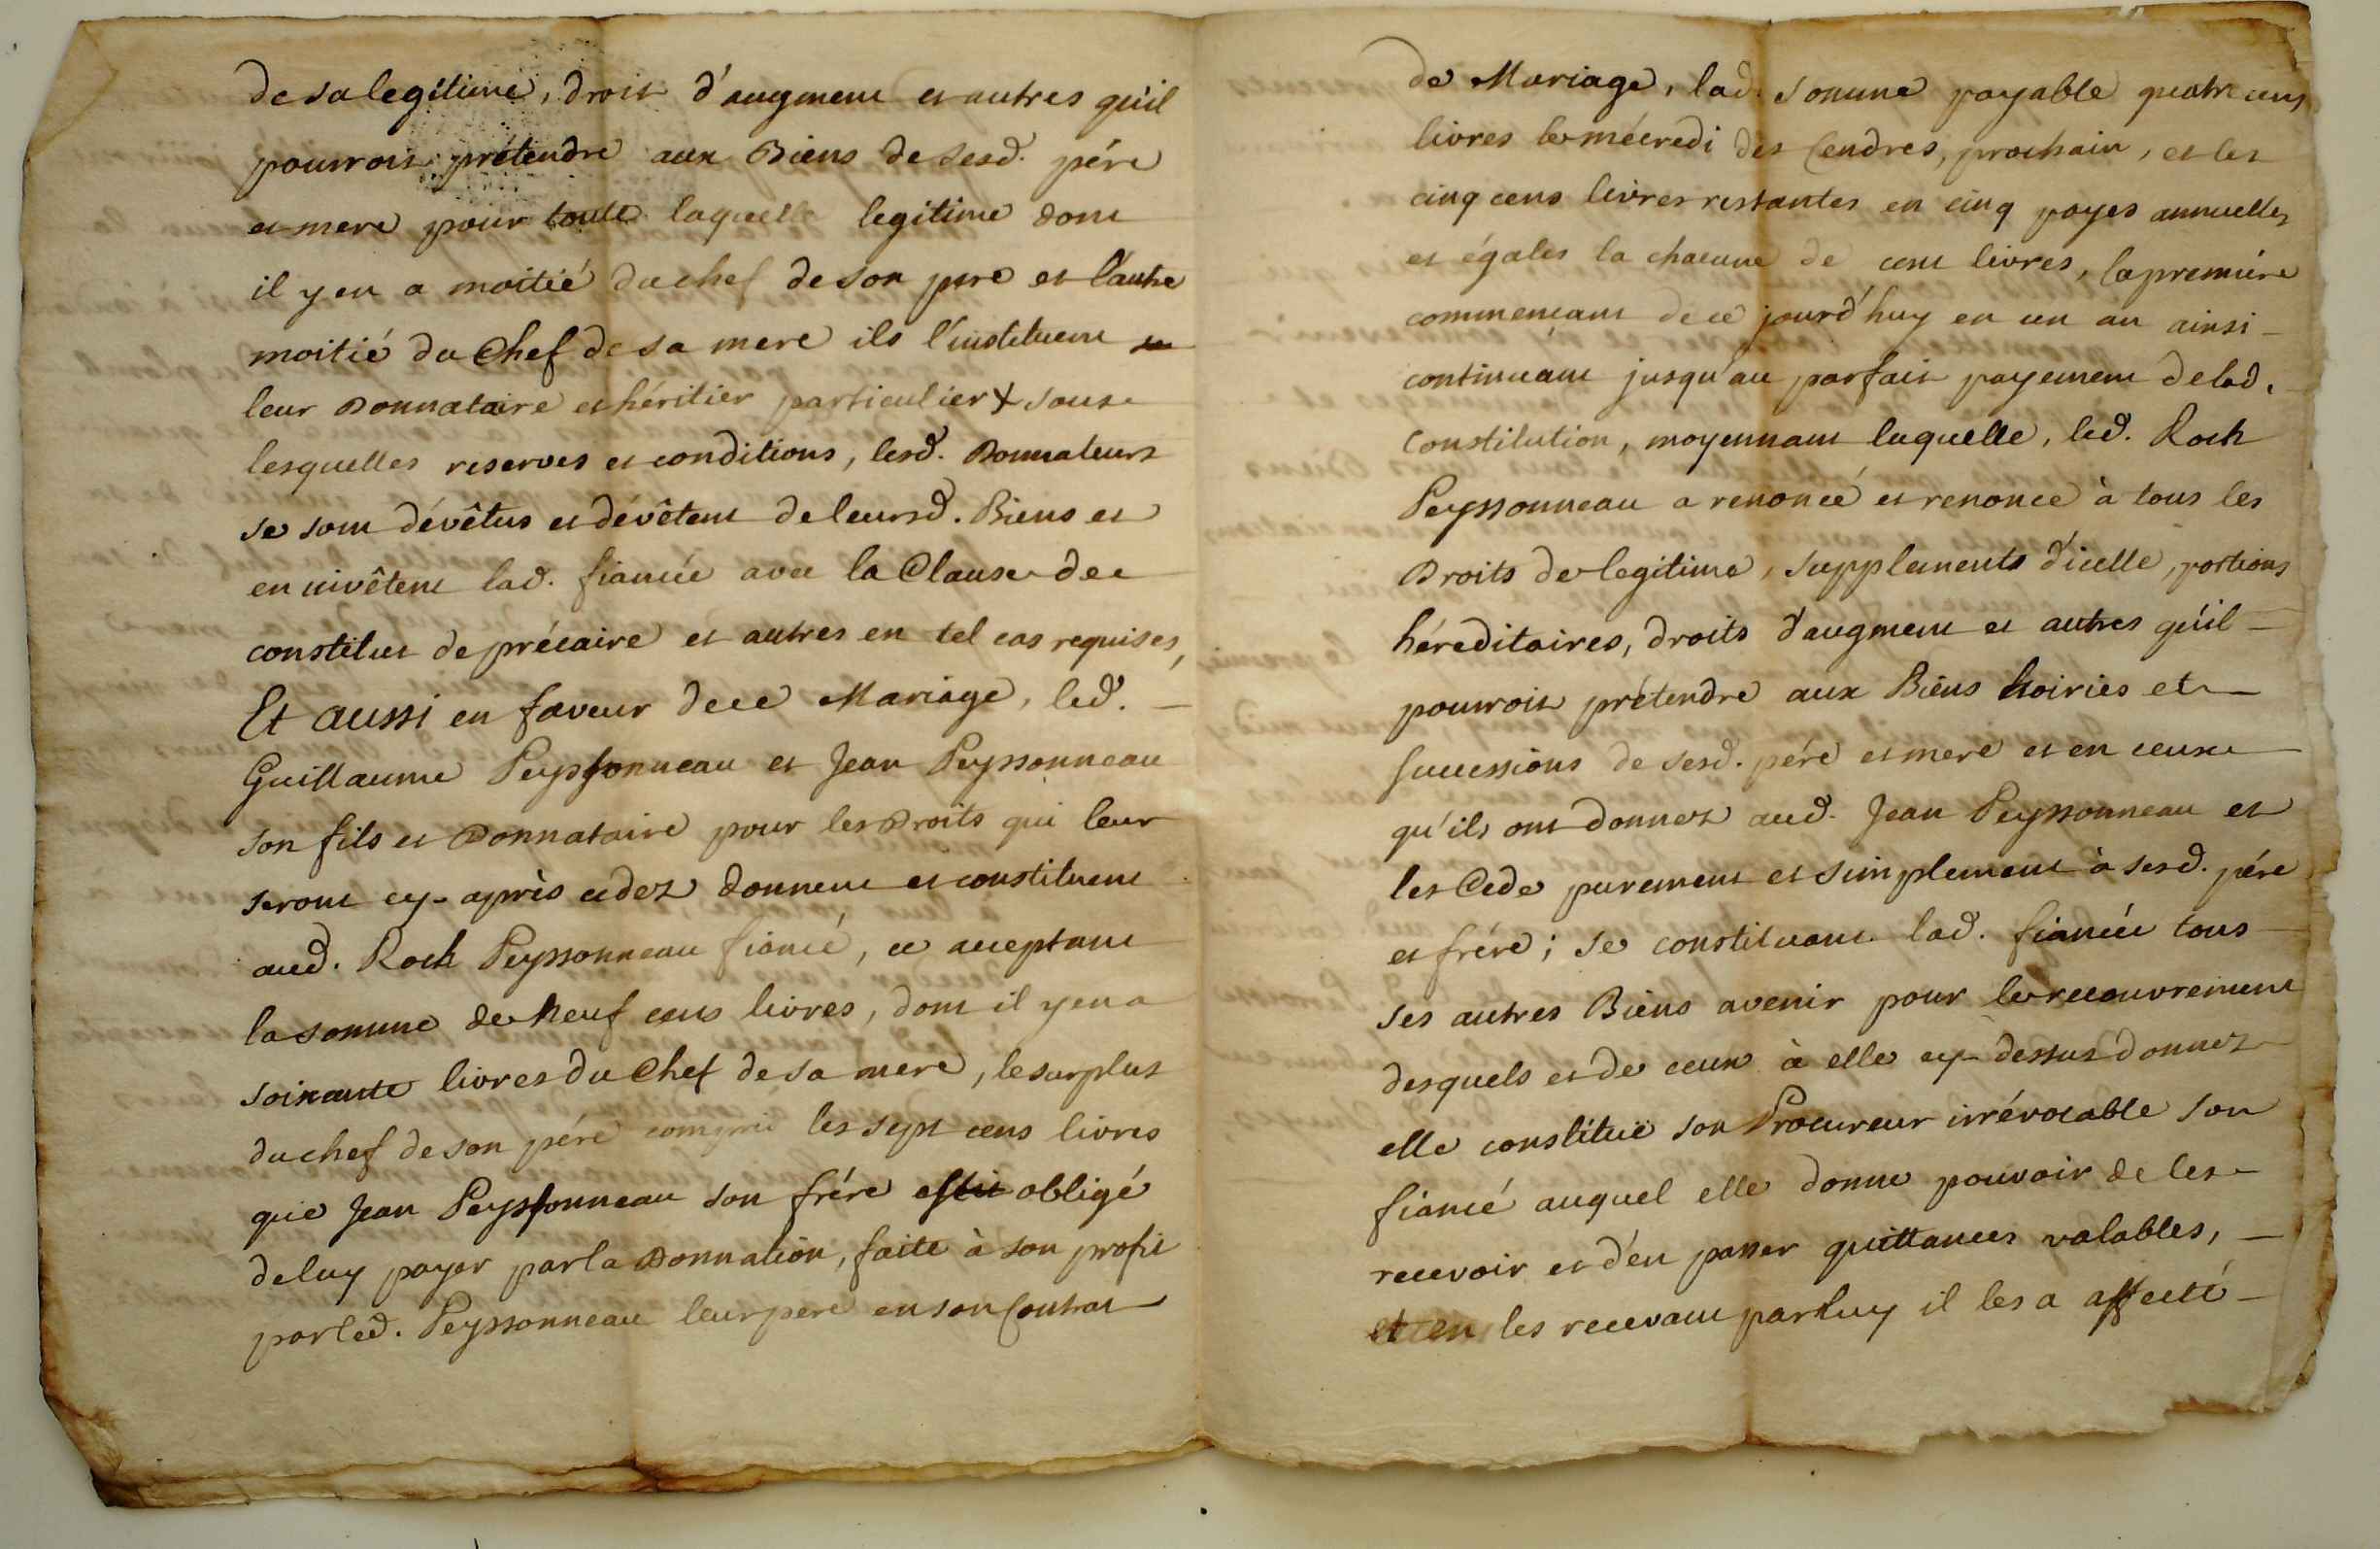 de sa legitime, droit d'augment et autres qu'il
pourroit prétendre aux Biens de sesd. pére
et mere pour toute laquelle legitime dont
il y en a moitié du chef de son pere et l'autre
moitié du Chef de sa mere ils l'instituent
leur Donnataire et héritier particulier + sous
lesquelles reserves et conditions, lesd. Donnateurs
se sont dévêtus et dévêtent de leursd. Biens et
en invêtent lad. fiancée avec la Clause de
constitut de précaire et autres en tel cas requises,
Et aussi en faveur de ce Mariage, led. —
Guillaume Peyssonneau et Jean Peyssonneau
son fils et Donnataire pour les Droits qui leur
seront cy-après cedez donnent et constituent
aud. Roch Peyssonneau fiancé, ce acceptant
la somme de neuf cens livres, dont il y en a
soixante livres du Chef de sa mere, le surplus
du chef de son pére compris les sept cens livres
que Jean Peyssonneau son frére obligé
de luy payer par la Donnation, faite à son profit
par led. Peyssonneau leur pere en son Contrat
de Mariage, lad. somme payable quatre cens
livres le mécredi des Cendres, prochain, et les
cinq cens livres restantes en cinq payes annuelles
et égales la chacune de cent livres, la premiére
commencant de ce jourd'huy en un an ainsi —
continuant jusqu'au parfait payement de lad.
Constitution, moyennant laquelle, led. Roch
Peyssonneau a renoncé et renonce à tous les
Droits de legitime, supplements d'icelle, portions
héreditaires, droits d'augment et autres qu'il —
pourroit prétendre aux Biens hoiries et —
successions de sesd. pére et mere et en ceux
qu'ils ont donnez aud. Jean Peyssonneau et
les Cede purement et simplement à sesd. pére
et frére ; se constituant lad. fiancée tous
ses autres Biens avenir pour le recouvrement
desquels et de ceux à elle cy-dessus donnez
elle constituë son Procureur irrévocable son
fiancé auquel elle donne pouvoir de les
recevoir et d'en passer quittances valables, —
et en les recevant par luy il les a affecté —